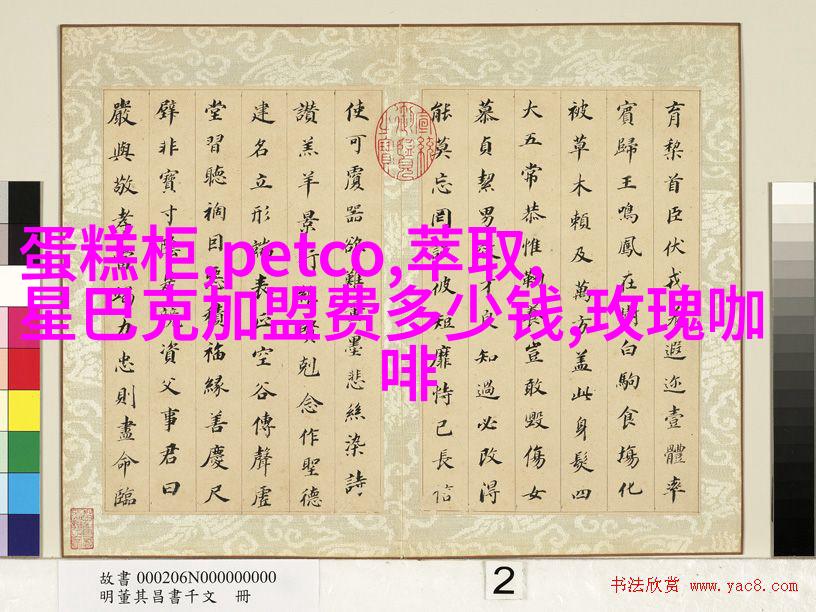 蛋糕柜,petco,萃取,
星巴克加盟费多少钱,玫瑰咖
啡
育黎首臣伏戎遐迩壹體率
賓歸王鳴鳳在樹白駒食場化
被草木賴及萬方蓋此身髮四
大五常恭惟鞠養豈敢毀傷女
慕貞絜男才良知過必改得
能莫忘罔談彼短靡恃己長信
使可覆器欲難量墨悲絲染詩
讚羔羊景行維賢剋念作聖德
建名立形端表正空谷傳聲虛
堂習聽禍因惡積福緣善慶尺
璧非寶寸陰是競資父事君曰
嚴與敬孝當竭力忠則盡命臨
故書 000206N000000000
明董其昌書千文 冊
2
书法欣赏 www.yac8.com